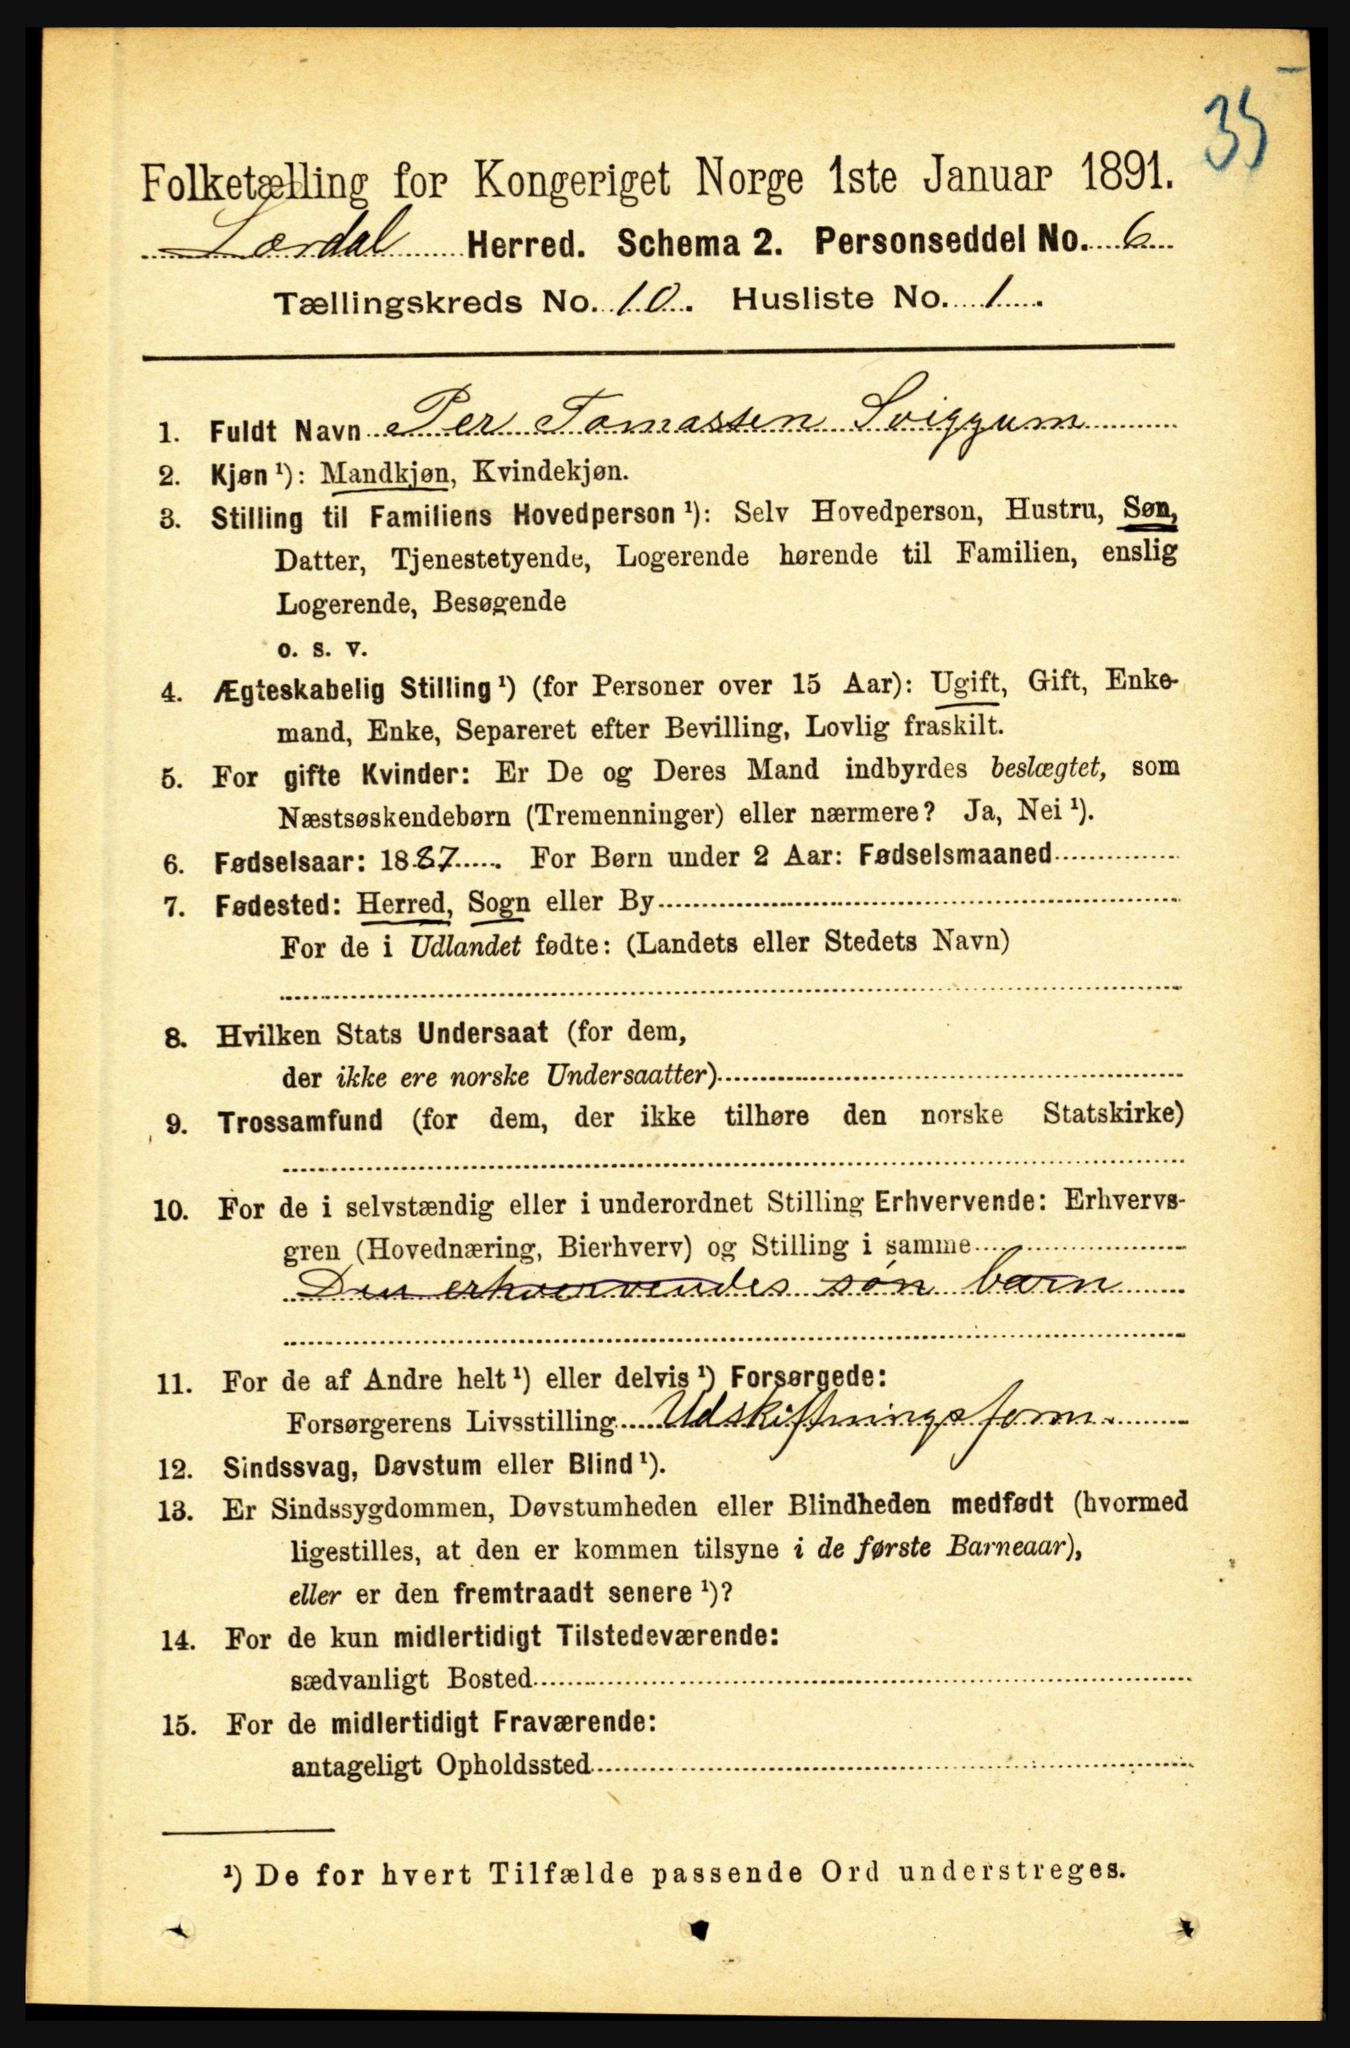 35
Folketælling for Kongeriget Norge 1ste Januar 1891.
Lærdal Herred. Schema 2. Personseddel No. 6
Tællingskreds No. 10. Husliste No. 1.
1. Fuldt Navn Per Tomassen Sviggum
2. Kjøn ¹): Mandkjøn, Kvindekjøn.
3. Stilling til Familiens Hovedperson ¹): Selv Hovedperson, Hustru, Søn,
Datter, Tjenestetyende, Logerende hørende til Familien, enslig
Logerende, Besøgende
o. s. v.
4. Ægteskabelig Stilling ¹) (for Personer over 15 Aar): Ugift, Gift, Enke-
mand, Enke, Separeret efter Bevilling, Lovlig fraskilt.
5. For gifte Kvinder: Er De og Deres Mand indbyrdes beslægtet, som
Næstsøskendebørn (Tremenninger) eller nærmere? Ja, Nei ¹).
6. Fødselsaar: 1887. For Børn under 2 Aar: Fødselsmaaned
7. Fødested: Herred, Sogn eller By
For de i Udlandet fødte: (Landets eller Stedets Navn)
8. Hvilken Stats Undersaat (for dem,
der ikke ere norske Undersaatter)
9. Trossamfund (for dem, der ikke tilhøre den norske Statskirke)
10. For de i selvstændig eller i underordnet Stilling Erhvervende: Erhvervs-
gren (Hovednæring, Bierhverv) og Stilling i samme
Den erhvervendes søn barn
11. For de af Andre helt ¹) eller delvis ¹) Forsørgede:
Forsørgerens Livsstilling Udskiftningsform.
12. Sindssvag, Døvstum eller Blind ¹).
13. Er Sindssygdommen, Døvstumheden eller Blindheden medfødt (hvormed
ligestilles, at den er kommen tilsyne i de første Barneaar),
eller er den fremtraadt senere ¹)?
14. For de kun midlertidigt Tilstedeværende:
sædvanligt Bosted
15. For de midlertidigt Fraværende:
antageligt Opholdssted
¹) De for hvert Tilfælde passende Ord understreges.